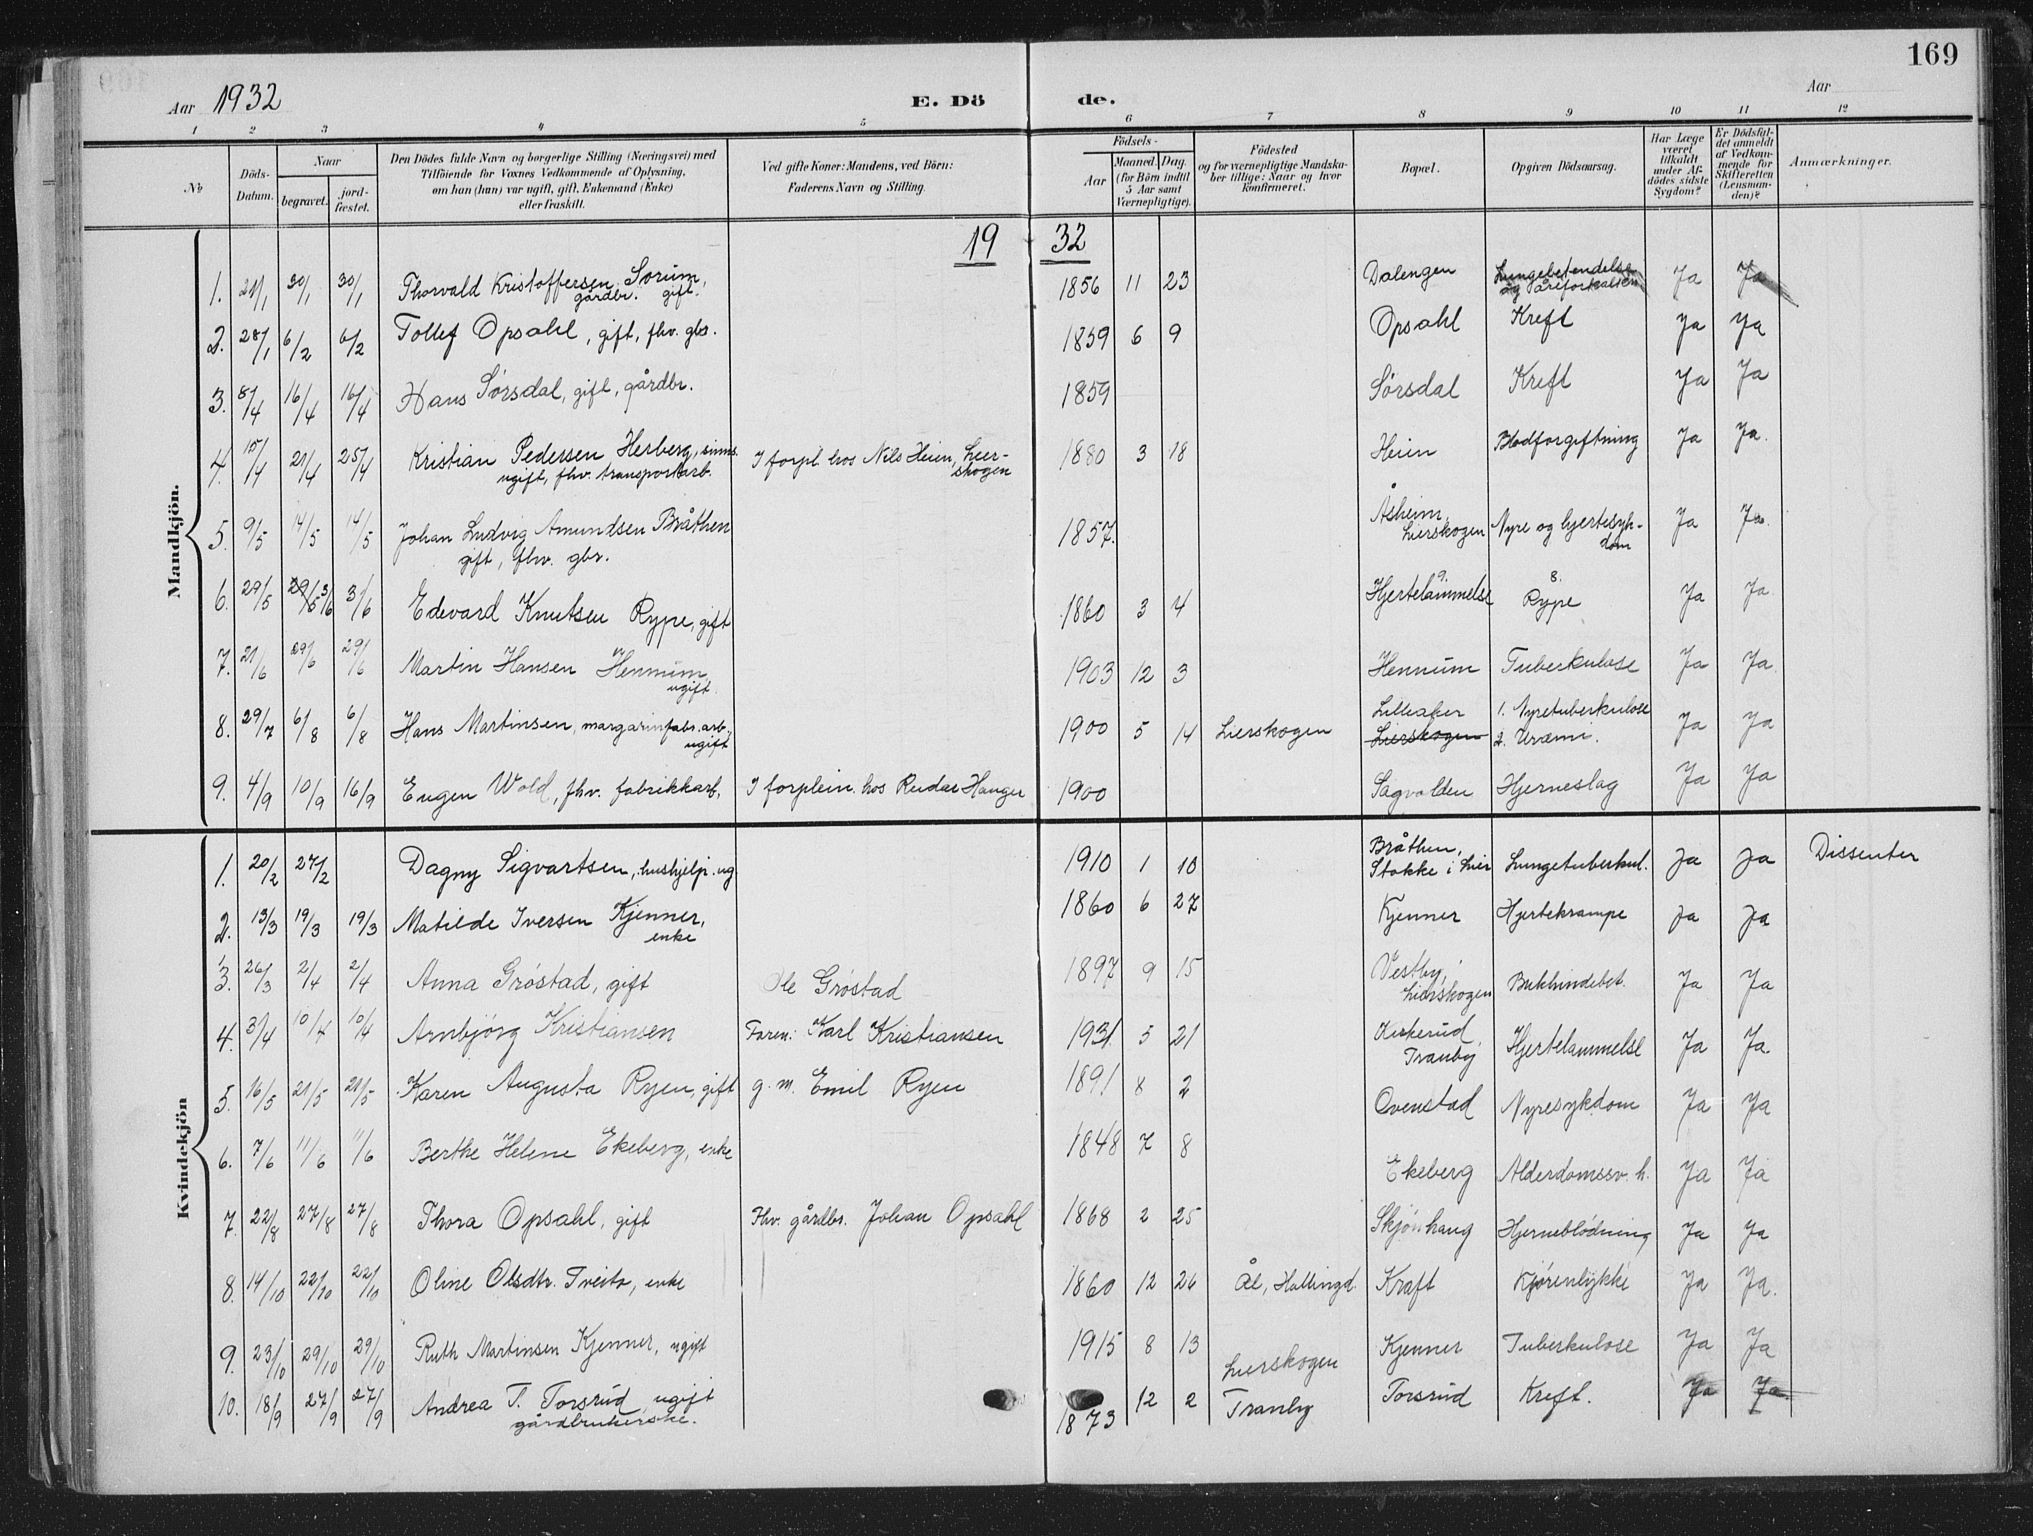 169
Aar 1932
E. Dö de.
Aar
1 2 3 4 5 6 7 8 9 10 11 12
No
Döds-Datum.
Naar
begravet.
jord-fæstet.
Den Dödes fulde Navn og borgerlige Stilling (Næringsvei) med
Tilföiende for Voxnes Vedkommende af Oplysning,
om han (hun) var ugift, gift, Enkemand (Enke)
eller fraskilt.
Ved gifte Koner: Mandens, ved Börn:
Faderens Navn og Stilling.
Födsels-
Aar
Maaned. Dag.
(for Börn indtil
5 Aar samt
Værnepligtige).
Födested
og for værnepligtige Mandska-
ber tillige: Naar og hvor
konfirmeret.
Bopæl.
Opgiven Dödsaarsag.
Har Læge
været
tilkaldt
under Af-
dödes sidste
Sygdom?
Er Dödsfal-
det anmeldt
af Vedkom-
mende for
Skifteretten
(Lensman-
den)?
Anmærkninger.
19 32
Mandkjön.
1. 21/1 30/1 30/1 Thorvald Kristoffersen Sørum, gårdbr. gift. 1856 11 23 Dalengen Lungebetendelse og åreforkalkn. Ja Ja
2. 28/1 6/2 6/2 Tollef Opsahl, gift, fhv. gbr. 1859 6 9 Opsahl Kreft Ja Ja
3. 8/4 16/4 16/4 Hans Sørsdal, gift, gårdbr. 1859 Sørsdal Kreft Ja Ja
4. 15/4 21/4 25/4 Kristian Pedersen Herberg, sinns. ugift, fhv. transportarb. I forpl. hos Nils Heien, Lier-skogen 1880 3 18 Heien Blodforgiftning Ja Ja.
5. 9/5 14/5 14/5 Johan Ludvig Amundsen Bråthen gift, fhv. gbr. 1857. Åsheim, Lierskogen Nyre og hjertesyk-dom Ja Ja.
6. 29/5 29/5 3/6 3/6 Edevard Knutsen Rype, gift 1860 3 4 9. Hjertelammelse 8. Rype Ja Ja
7. 21/6 29/6 29/6 Martin Hansen Hennum, ugift 1903 12 3 Hennum Tuberkulose Ja Ja
8. 29/7 6/8 6/8 Hans Martinsen, margarinfabr. arb., ugift 1900 5 14 Lierskogen Lilleaker Lierskogen 1. Nyretuberkulose 2. Uræmi. Ja Ja
9. 4/9 10/9 16/9 Eugen Wold, fhv. fabrikkarb. I forplein. hos Reidar Hauger 1900 Sagvolden Hjerneslag Ja Ja
Kvindekjön
1. 20/2 27/2 Dagny Sigvartsen, hushjelp. ug 1910 1 10 Bråthen, Stokke i Lier Lungetuberkul. Ja Ja Dissenter
2. 13/3 19/3 19/3 Matilde Iversen Kjenner, enke 1860 6 27 Kjenner Hjertekrampe Ja Ja
3. 26/3 2/4 2/4 Anna Grøstad, gift Ole Grøstad 1897 9 15 Vestby, Lierskogen Bukhindebet. Ja Ja
4. 3/4 10/4 10/4 Arnbjørg Kristiansen Faren: Karl Kristiansen 1931. 5 21 Kirkerud, Tranby Hjertelammelse Ja Ja
5. 16/5 21/5 21/5 Karen Augusta Ryen, gift g. m. Emil Ryen 1891 8 2 Ovenstad Nyresykdom Ja Ja
6. 7/6 11/6 11/6 Berthe Helene Ekeberg, enke 1848 7 8 Ekeberg Alderdomssv. h. Ja Ja
7. 22/8 27/8 27/8 Thora Opsahl, gift Fhv. gårdbr. Johan Opsahl 1868 2 25 Skjønhaug Hjerneblödning Ja Ja
8. 14/10 22/10 22/10 Oline Olsdtr. Tveito, enke 1860 12 26 Ål, Hallingd. Kraft Kjørenlykke Ja Ja.
9. 23/10 29/10 29/10 Ruth Martinsen Kjenner, ugift 1915 8 13 Lierskogen Kjenner Tuberkulose Ja Ja
10. 18/9 27/9 27/9 Andrea T. Torsrud, ugift gårdbrukerske. 1873 12 2 Tranby Torsrud Kreft. Ja Ja